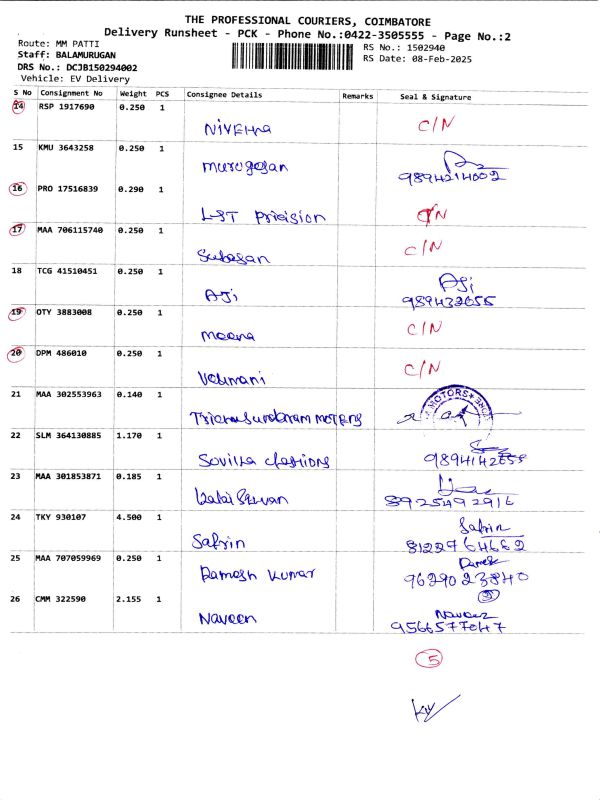 THE PROFESSIONAL COURIERS, COIMBATORE
Delivery Runsheet - PCK - Phone No.:0422-3505555 - Page No.:2
Route: MM PATTI
RS No.: 1502940
Staff: BALAMURUGAN
RS Date: 08-Feb-2025
DRS No.: DCJB150294002
Vehicle: EV Delivery
S No Consignment No Weight PCS Consignee Details Remarks Seal & Signature
14 RSP 1917690 0.250 1
C/N
15 KMU 3643258 0.250 1
murugesan
9894214002
16 PRO 17516839 0.290 1
C/N
17 MAA 706115740 0.250 1
C/N
18 TCG 41510451 0.250 1
AJi AJi
19 OTY 3883008 0.250 1
meena C/N
20 DPM 486010 0.250 1
C/N
21 MAA 302553963 0.140 1
MOTORS
22 SLM 364130885 1.170 1
23 MAA 301853871 0.185 1
8925492916
24 TKY 930107 4.500 1
Safrin Safrin
8122964662
25 MAA 707059969 0.250 1
Ramesh Kumar
9629023840
26 CMM 322590 2.155 1
Naveen
9566577047
5